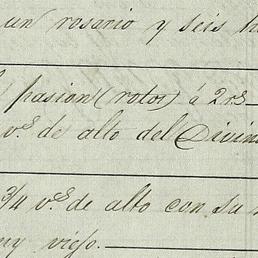 un rosario y seis
pasion (rotos) á 2 r.s
v.s de alto del Divin
3/4 v.s de alto con su
viejo.